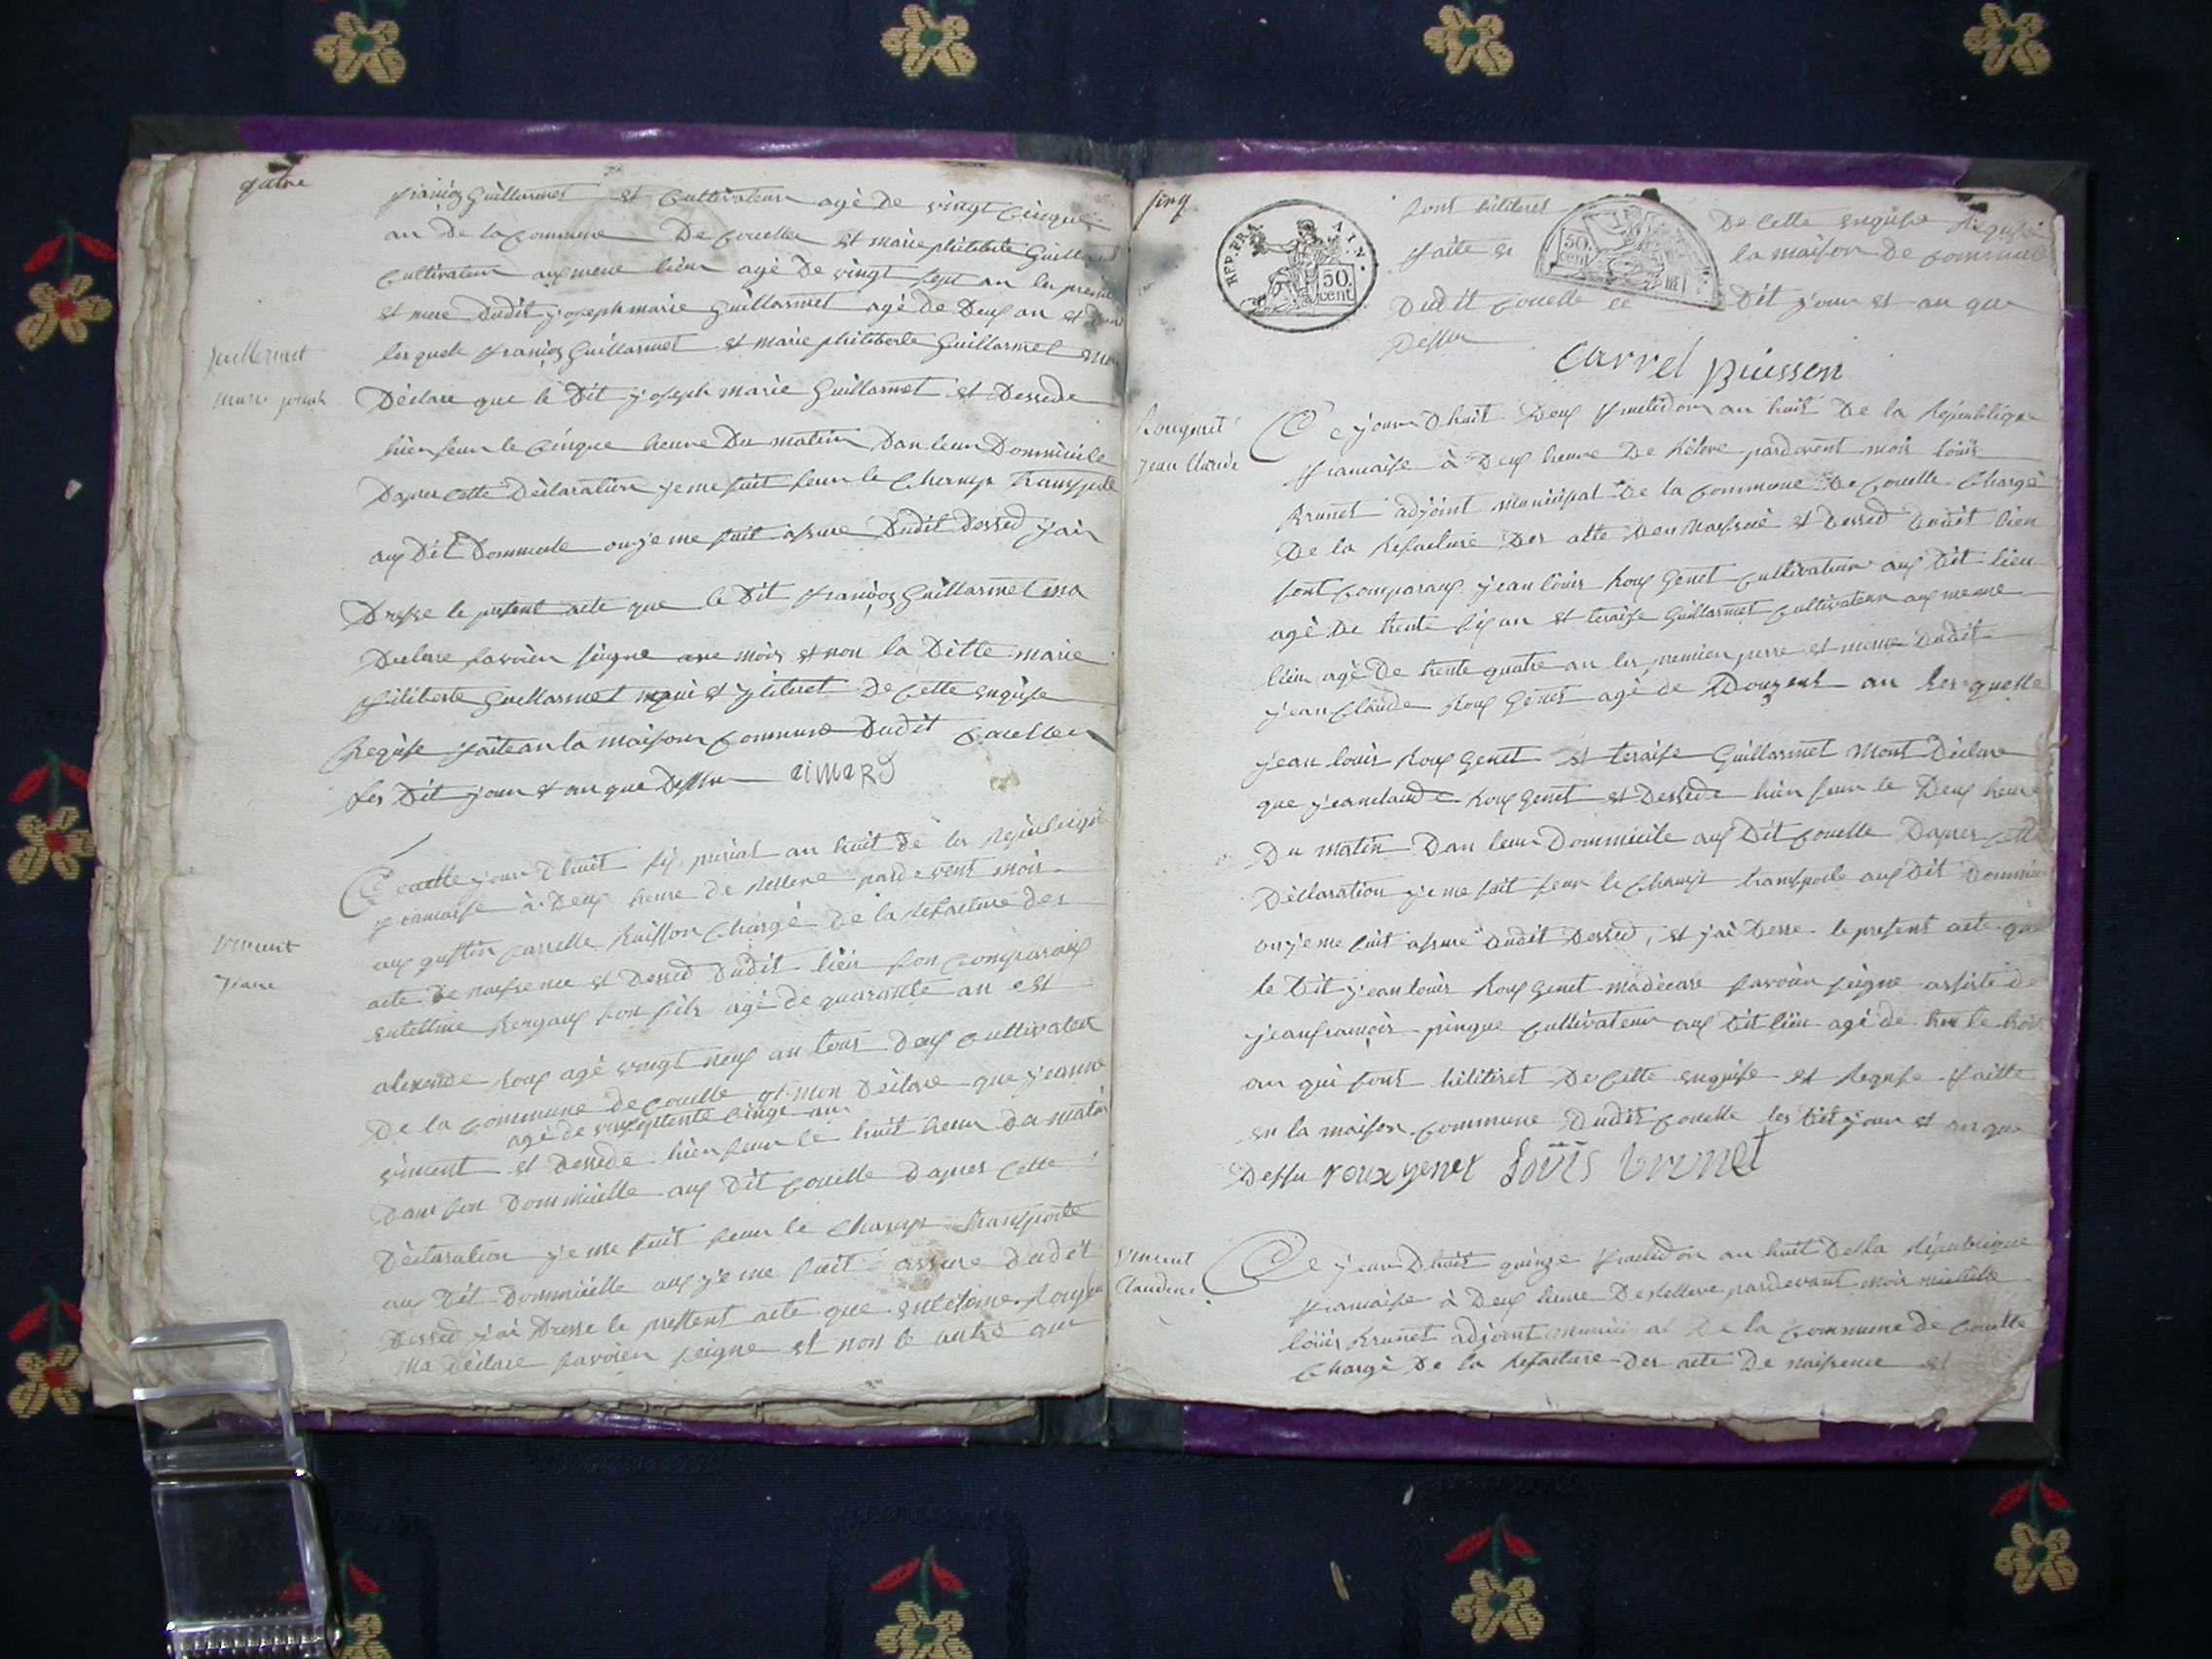 quatre
françois Guillarmet et Cultivateur agé De vingt Cinque
an De la Commune De Couelle et marie philiberte Guillarmet
Cultivateur aux meme lieu agé De vingt sept an les premier
et mere Dudit joseph marie Guillarmet agé de Deux an et
Guillermet
marie joseph
les quels françois Guillarmet et marie philiberte Guillarmet mon
Déclare que le Dit joseph marie Guillarmet et Dessede
hier seur le Cinque heure Du matin Dan leur Dommicile
Dapres Cette Déclaration je me suit seur le Champs transporte
aux Dit Dommicile ou je me suit assure Dudit Dessed j'ai
Dresse le present acte que le Dit françois Guillarmet ma
Declare savoier seigne avec mois et non la Ditte marie
filiberte Guillarmet De Cette enquise
Requise faite an la maison Commune Dudit Couelle
les Dit jour et an que Dessu aimard
vincent
jeane
jour Dhuit six prerial an huit de la Republique
francaise à Deux heure de Relleve pardevent mois
aux gustin Carrelle Buisson Chargé De la Refacture des
acte De naissence et Dessed Dudit lieu son Comparaux
entelme Rergaux son fils agé de quarante an est
alexende Roux agé vingt neuf an tous Deux Cultivateur
De la Commune de Couelle mon Déclare que jeanne
agé de septente Cinq an
vincent et Dessede hier seur le huit heur Du matin
Dans son Dommicille aux Dit Couelle Dapres Cette
Déclaration je me suit seur le Champs transporte
aux Dit Dommicille aux je me suit assure Dudit
Dessed j'ai Dresse le pressent acte que entelme
ma Déclare savoier seigne et non le autre qui
sinq
REP. FRA. AIN.
50. cent
sont hiliteret De Cette enquise Requise
50. cent
faite en la maison De Commune
Dudit Couelle le Dit jour et an que
Dessu
Carrel Buisson
Rougenet
jean Claude
Ce jour Dhuit Deux fructidor an huit De la Republique
francaise à Deux heure De Releve pardevent mois louis
Brunet adjoint municipal De la Commune De Couelle Chargé
De la Refacture Des atte Deu Nassence et Dessed Dudit lieu
sont Comparaux jean louis Roux Genet Cultivateur aux Dit lieu
agé De trente six an et teraise Guillarmet Cultivateur aux meme
lieu agé De trente quatre an les premier perre et merre Dudit
jean Claude Roux Genet agé de Douze an les quelle
jean louis Roux Genet et teraise Guillarmet Mont Déclare
que jeanclaude Roux Genet et Dessede hier seur le Deux heure
Du matin Dan leur Dommicile aux Dit Couelle Dapres Cette
Déclaration je me suit seur le Champs transporte aux Dit Dommicile
ou je me suit assure Dudit Dessed, et jai Desse le present acte que
le Dit jean louis Roux Genet madecare savoier seigne assisté de
jeanfrançois pinque Cultivateur aux Dit lieu agé de trente
an qui sont hilitiret De Cette enquise et Requise faitte
en la maison Commune Dudit Couelle les Dit jour et an que
Dessu roux genet Louis brunet
vincent
Claudine
Ce jour Dhuit quinze fructidor an huit De la République
francaise à Deux heure De Relleve pardevant mois
louis Brunet adjoint De la Commune de Couelle
Chargé De la Refacture des acte De naissence et